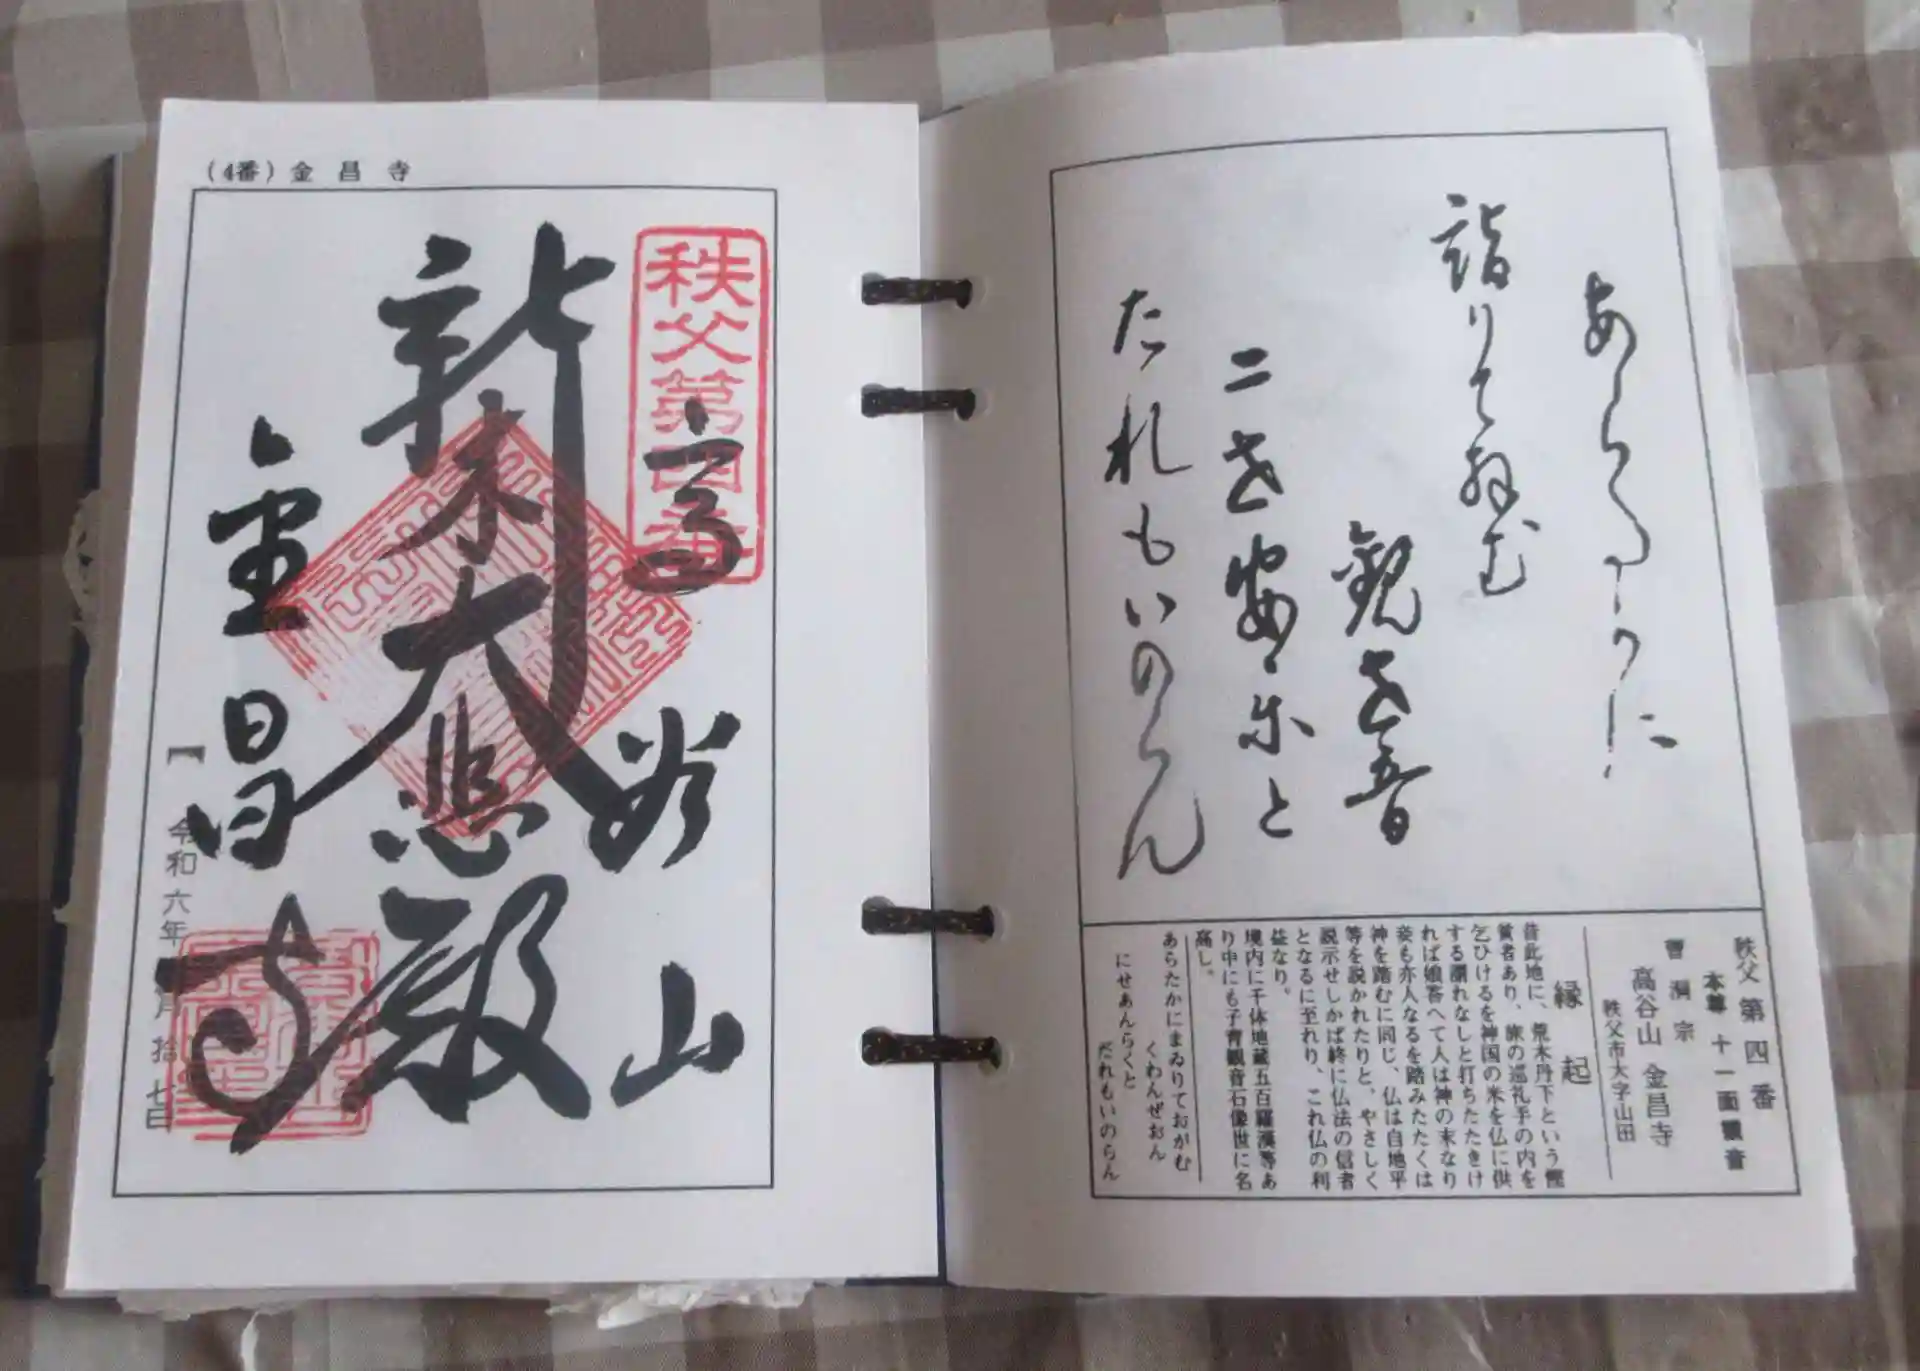 あらたかに
詣りて拝む
観世音
二世安楽と
たれもいのらん
秩父 第四番
本尊 十一面観音
曹洞宗
高谷山 金昌寺
秩父市大字山田
縁起
昔此地に、荒木丹下という慳
貪者あり、旅の巡礼手の内を
乞ひけるを神国の米を仏に供
する謂れなしと打ちたたきけ
れば娘答へて人は神の末なり
妾も亦人なるを踏みたたくは
神を踏むに同じ、仏は自地平
等を説かれたりと、やさしく
説示せしかば終に仏法の信者
となるに至れり、これ仏の利
益なり。
境内に千体地蔵五百羅漢等あ
り中にも子育観音石像世に名
高し。
あらたかにまゐりておがむ
くわんぜおん
にせあんらくと
だれもいのらん
(4番)金昌寺
秩父第四番
高谷山
新木大悲殿
金昌寺
令和六年 月拾七日